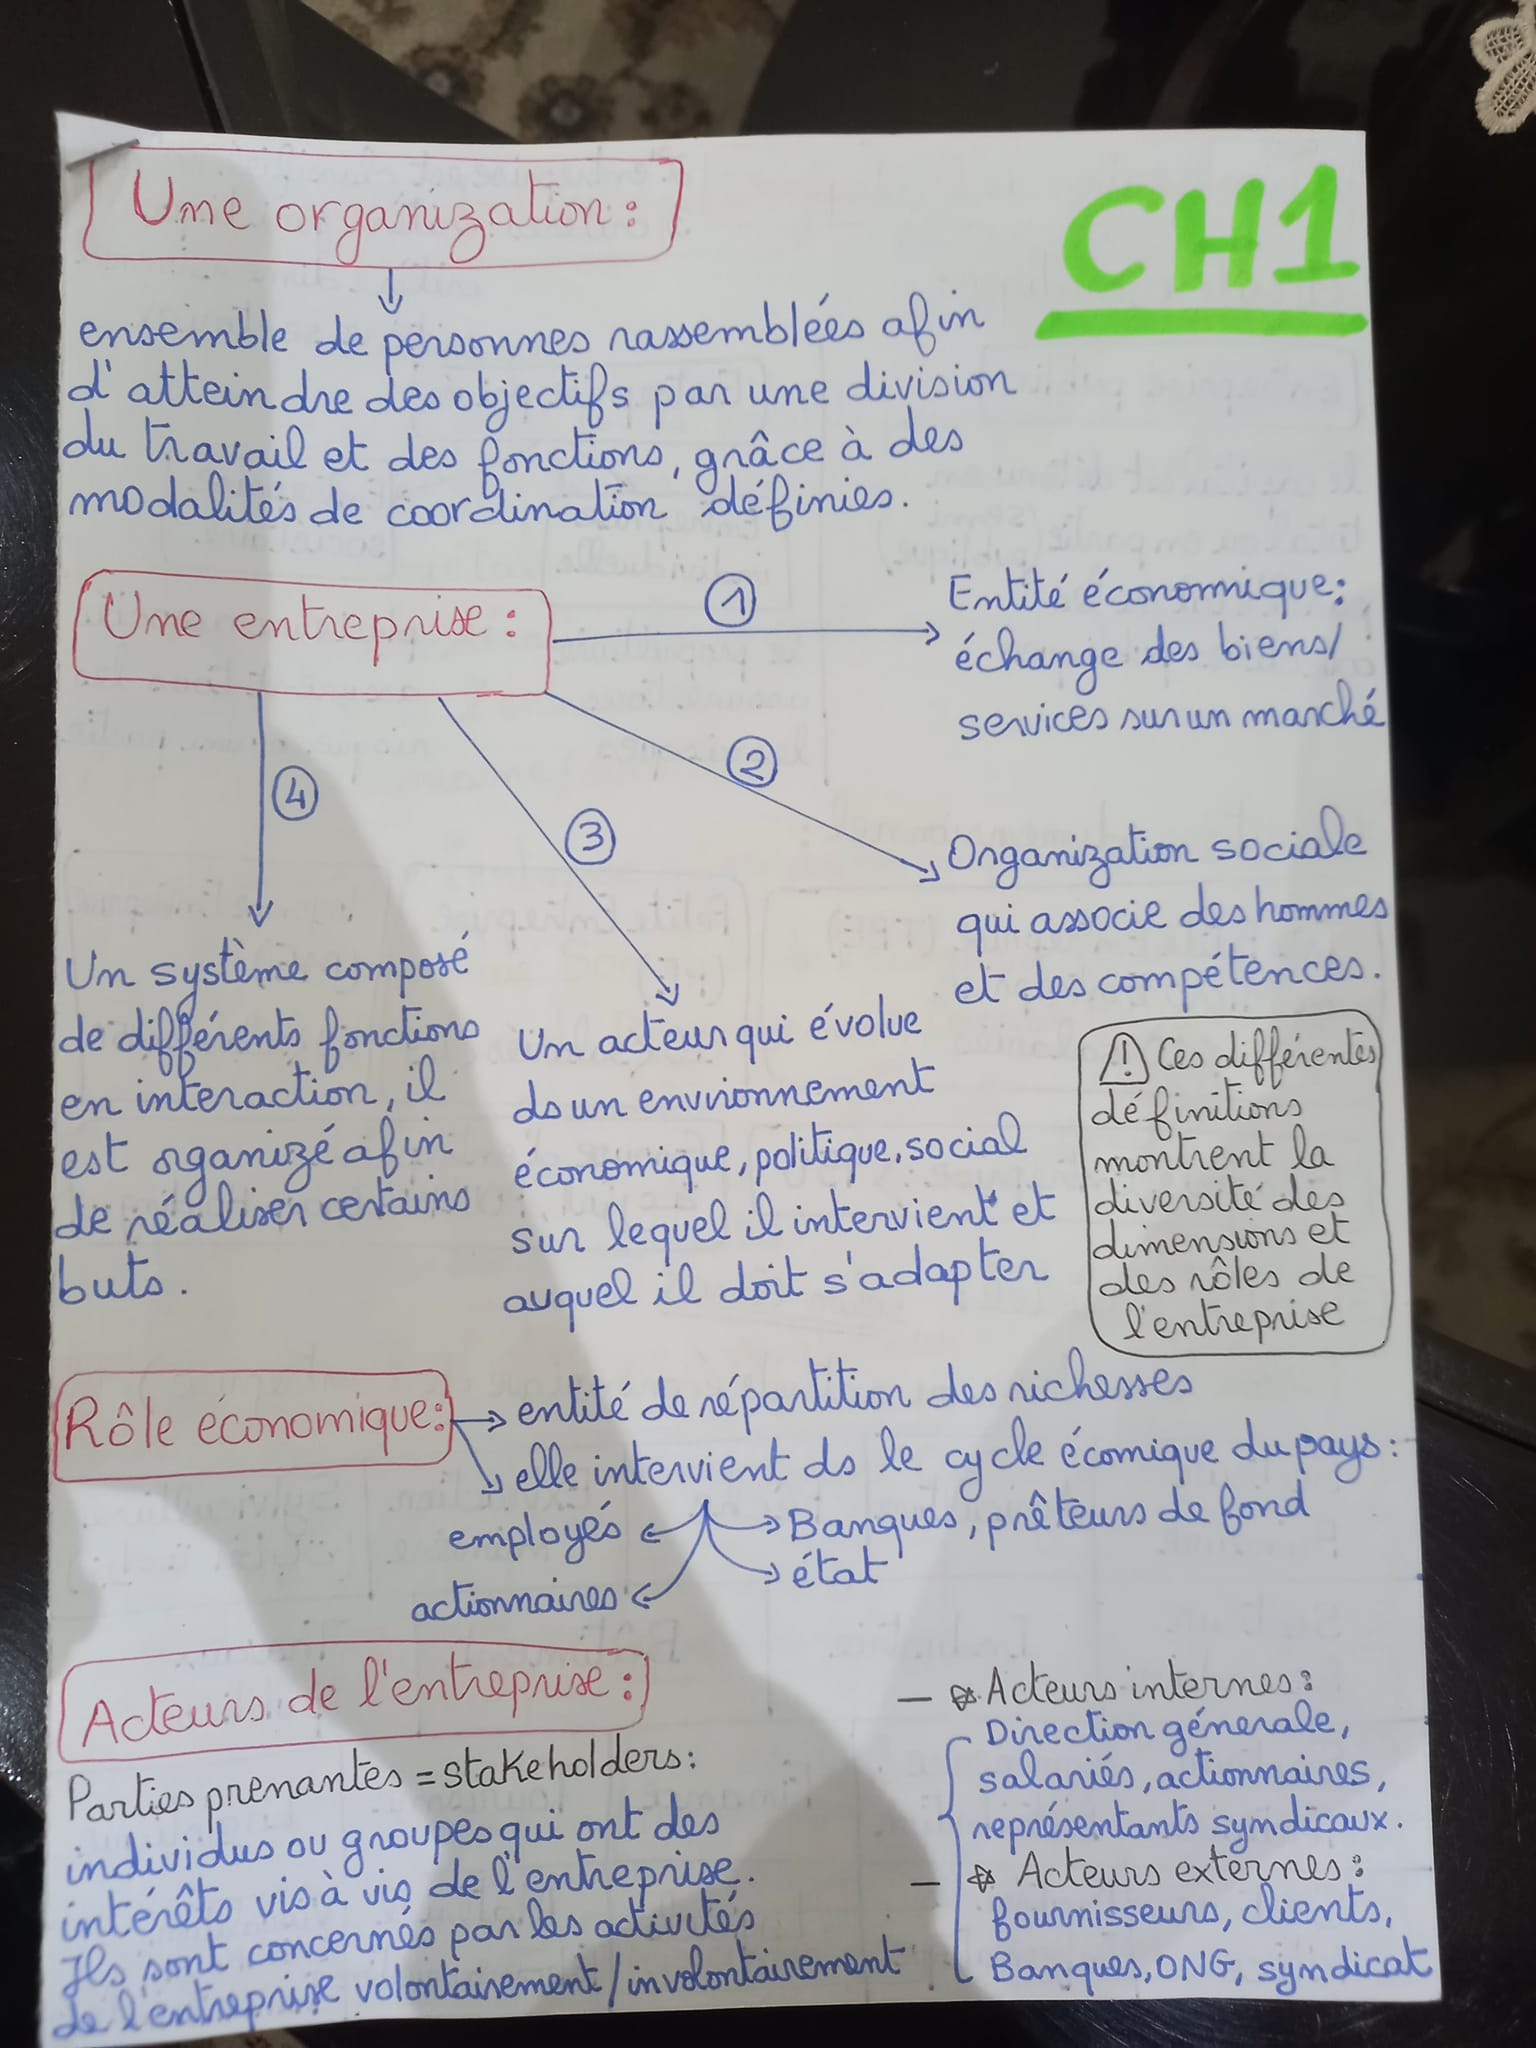 CH1
Une organization :
ensemble de personnes rassemblées afin
d'atteindre des objectifs par une division
du travail et des fonctions, grâce à des
modalités de coordination définies.
Une entreprise :
1
Entité économique :
échange des biens/
services sur un marché
2
Organization sociale
qui associe des hommes
et des compétences.
3
Un acteur qui évolue
ds un environnement
économique, politique, social
sur lequel il intervient et
auquel il doit s'adapter
4
Un système composé
de différents fonctions
en interaction, il
est organizé afin
de réaliser certains
buts.
! Ces différentes
définitions
montrent la
diversité des
dimensions et
des rôles de
l'entreprise
Rôle économique :
entité de répartition des richesses
elle intervient ds le cycle écomique du pays :
employés
Banques, prêteurs de fond
état
actionnaires
Acteurs de l'entreprise :
Parties prenantes = stakeholders :
individus ou groupes qui ont des
intérêts vis à vis de l'entreprise.
Ils sont concernés par les activités
de l'entreprise volontairement/involontairement
- Acteurs internes :
Direction génerale,
salariés, actionnaires,
représentants syndicaux.
- Acteurs externes :
fournisseurs, clients,
Banques, ONG, syndicat